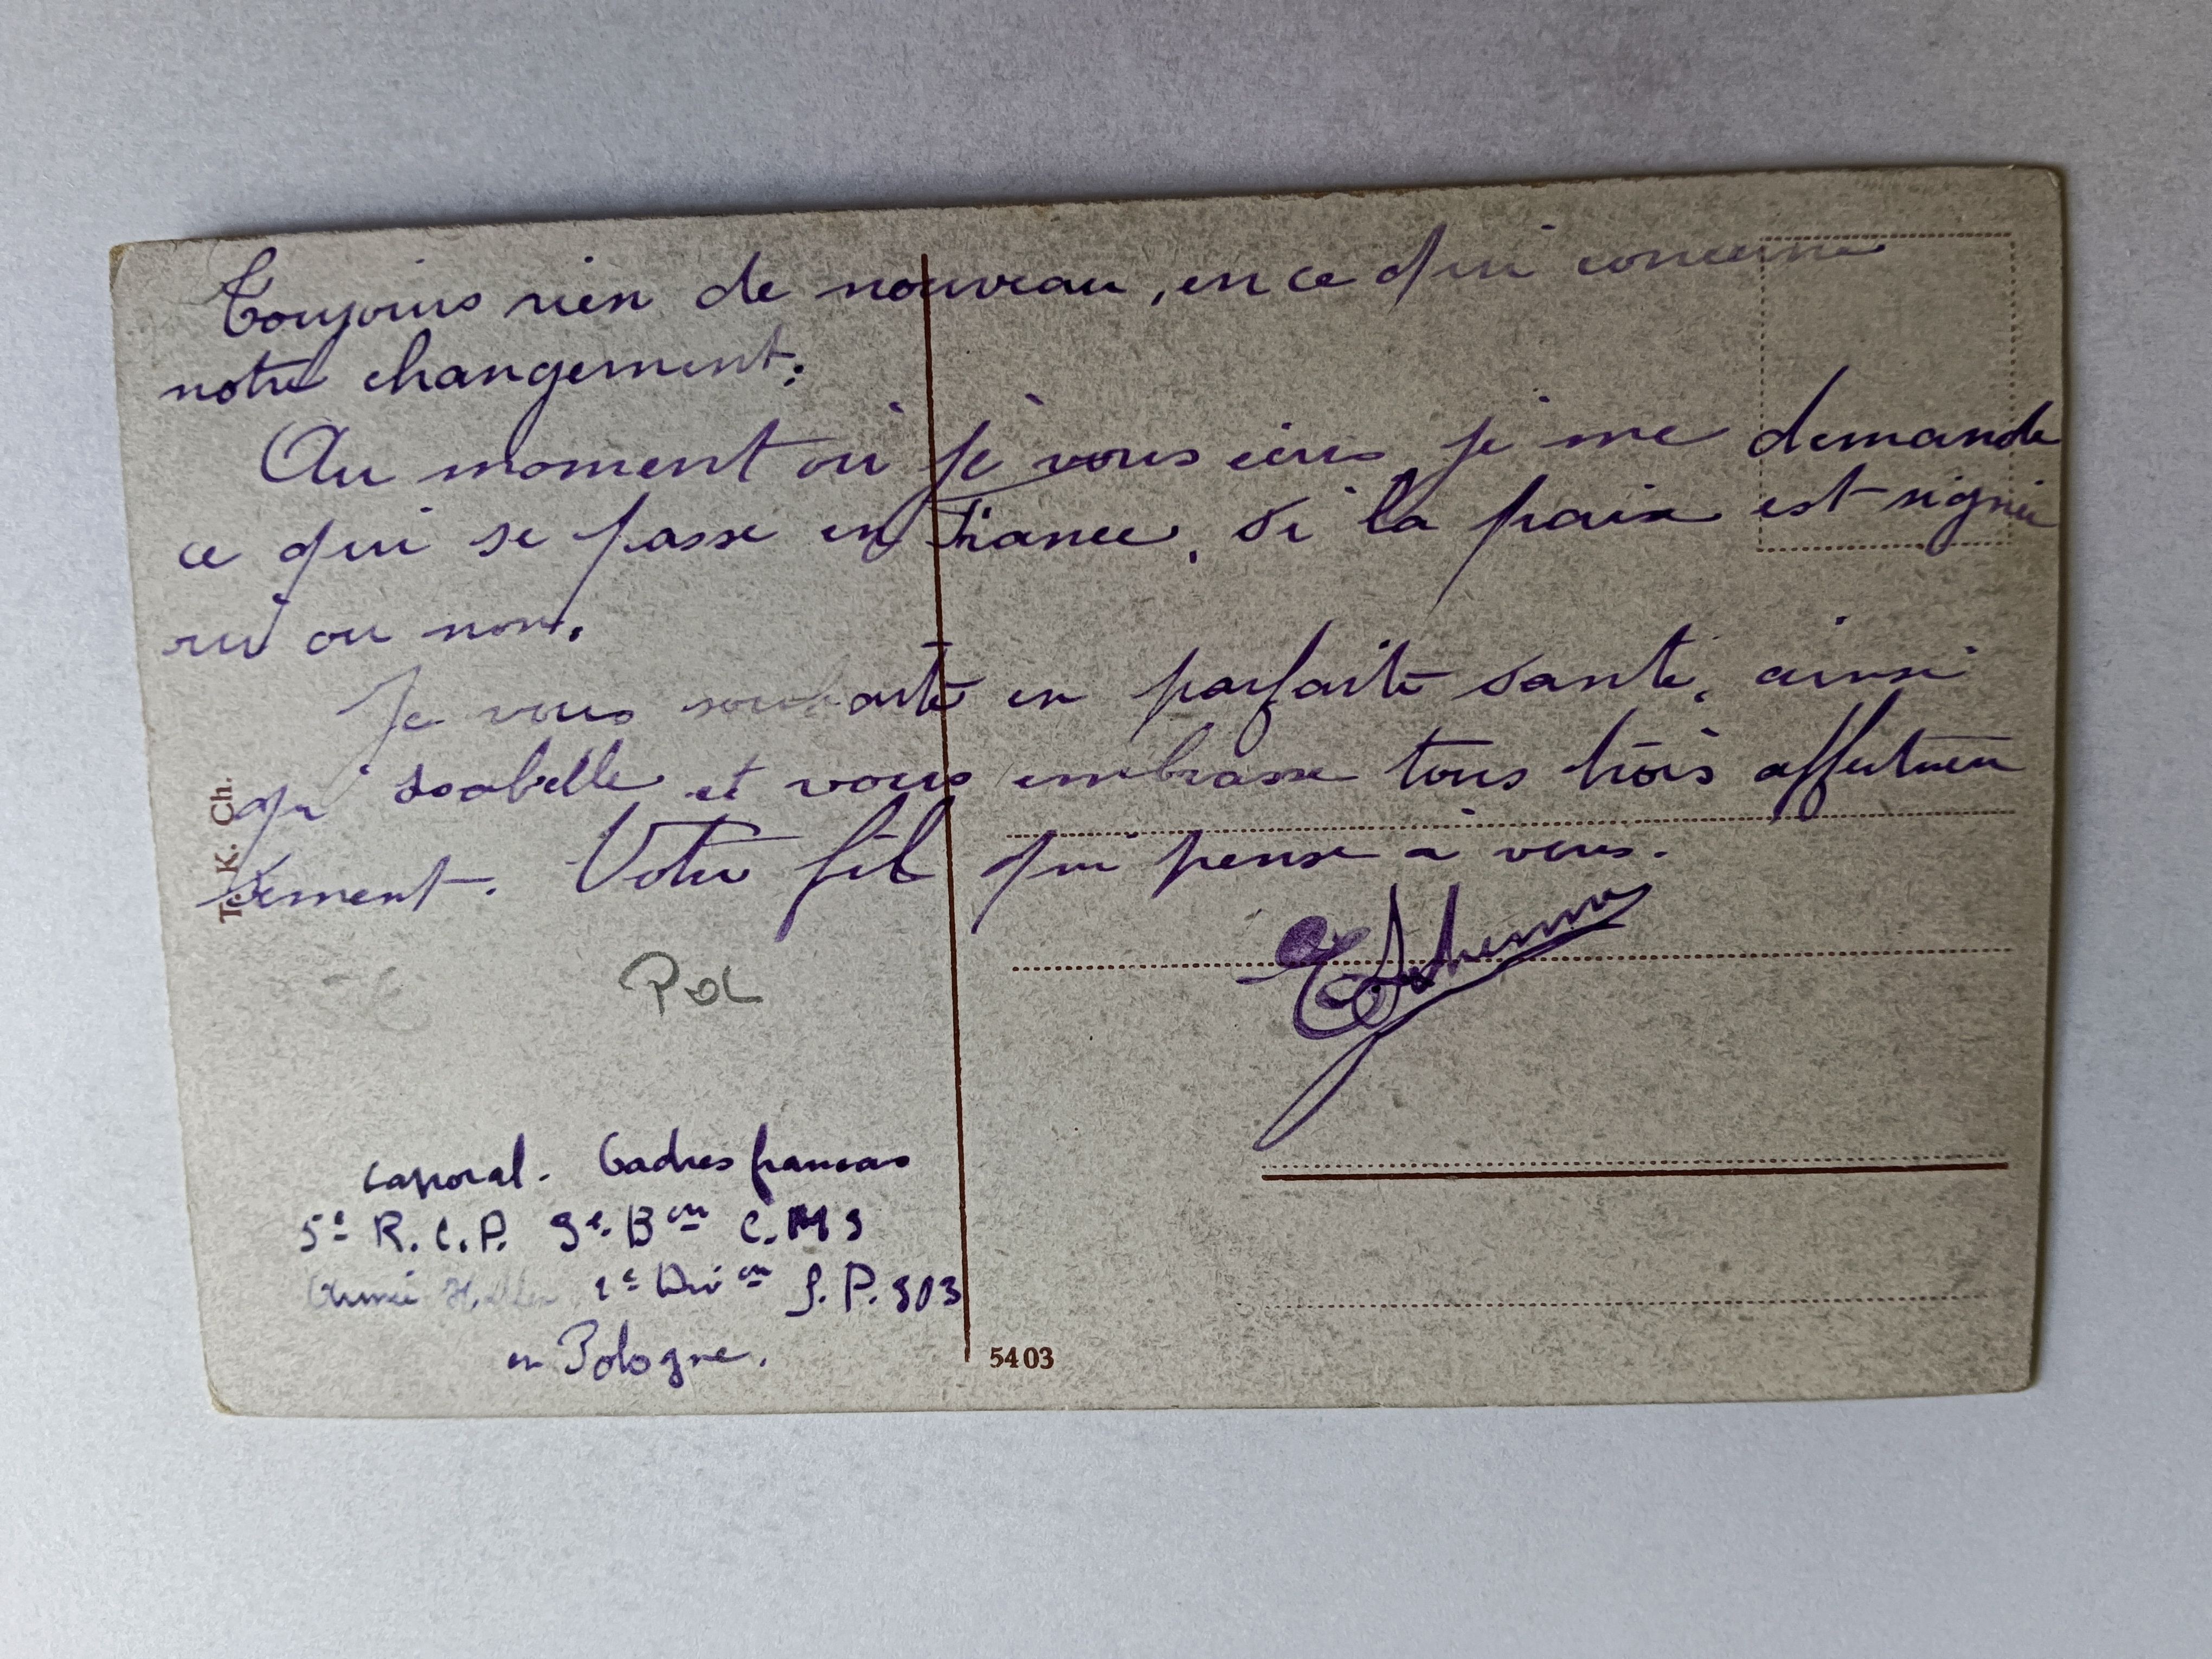 Toujours rien de nouveau, en ce qui concerne
notre changement.
Au moment où je vous écris je me demande
ce qui se passe en France, si la paix est signée
oui ou non.
Je vous souhaite en parfaite santé, ainsi
qu' Isabelle et vous embrasse tous trois affectueu
sement. Votre fils qui pense à vous.
T. K. Ch.
Pol
Caporal. Cadres français
5e R.C.P. 3e Bon C.M3
Armée Haller 1e Divon S.P. 303
en Pologne.
5403